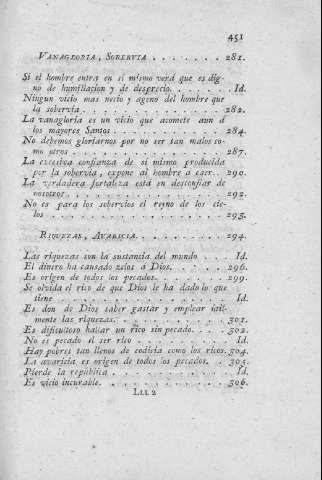 451
VANAGLORIA, SOBERVIA . . . . . . . 281.
Si el hombre entra en si mismo verá que es dig-
no de humillacion y de desprecio. . . . . . . Id.
Ningun vicio mas necio y ageno del hombre que
la sobervia . . . . . . . . . . . . . . 282.
La vanagloria es un vicio que acomete aun á
los mayores Santos . . . . . . . . . . . 284.
No debemos gloriarnos por no ser tan malos co-
mo otros . . . . . . . . . . . . . . . 287.
La excesiva confianza de si mismo producida
por la sobervia, expone al hombre á caer. . . 290.
La verdadera fortaleza está en desconfiar de
nosotros . . . . . . . . . . . . . . . 292.
No es para los sobervios el reyno de los cie-
los . . . . . . . . . . . . . . . . . 293.
RIQUEZAS, AVARICIA. . . . . . . . . 294.
Las riquezas son la sustancia del mundo . . . . Id.
El dinero ha causado zelos á Dios. . . . . . 296.
Es origen de todos los pecados. . . . . . . 299.
Se olvida el rico de que Dios le ha dado lo que
tiene . . . . . . . . . . . . . . . . . Id.
Es don de Dios saber gastar y emplear util-
mente las riquezas. . . . . . . . . . . 301.
Es dificultoso hallar un rico sin pecado. . . . 302.
No es pecado el ser rico . . . . . . . . . Id.
Hay pobres tan llenos de codicia como los ricos. 304.
La avaricia es origen de todos los pecados. . . 305.
Pierde la república . . . . . . . . . . . Id.
Es vicio incurable. . . . . . . . . . . . 306.
LLL 2